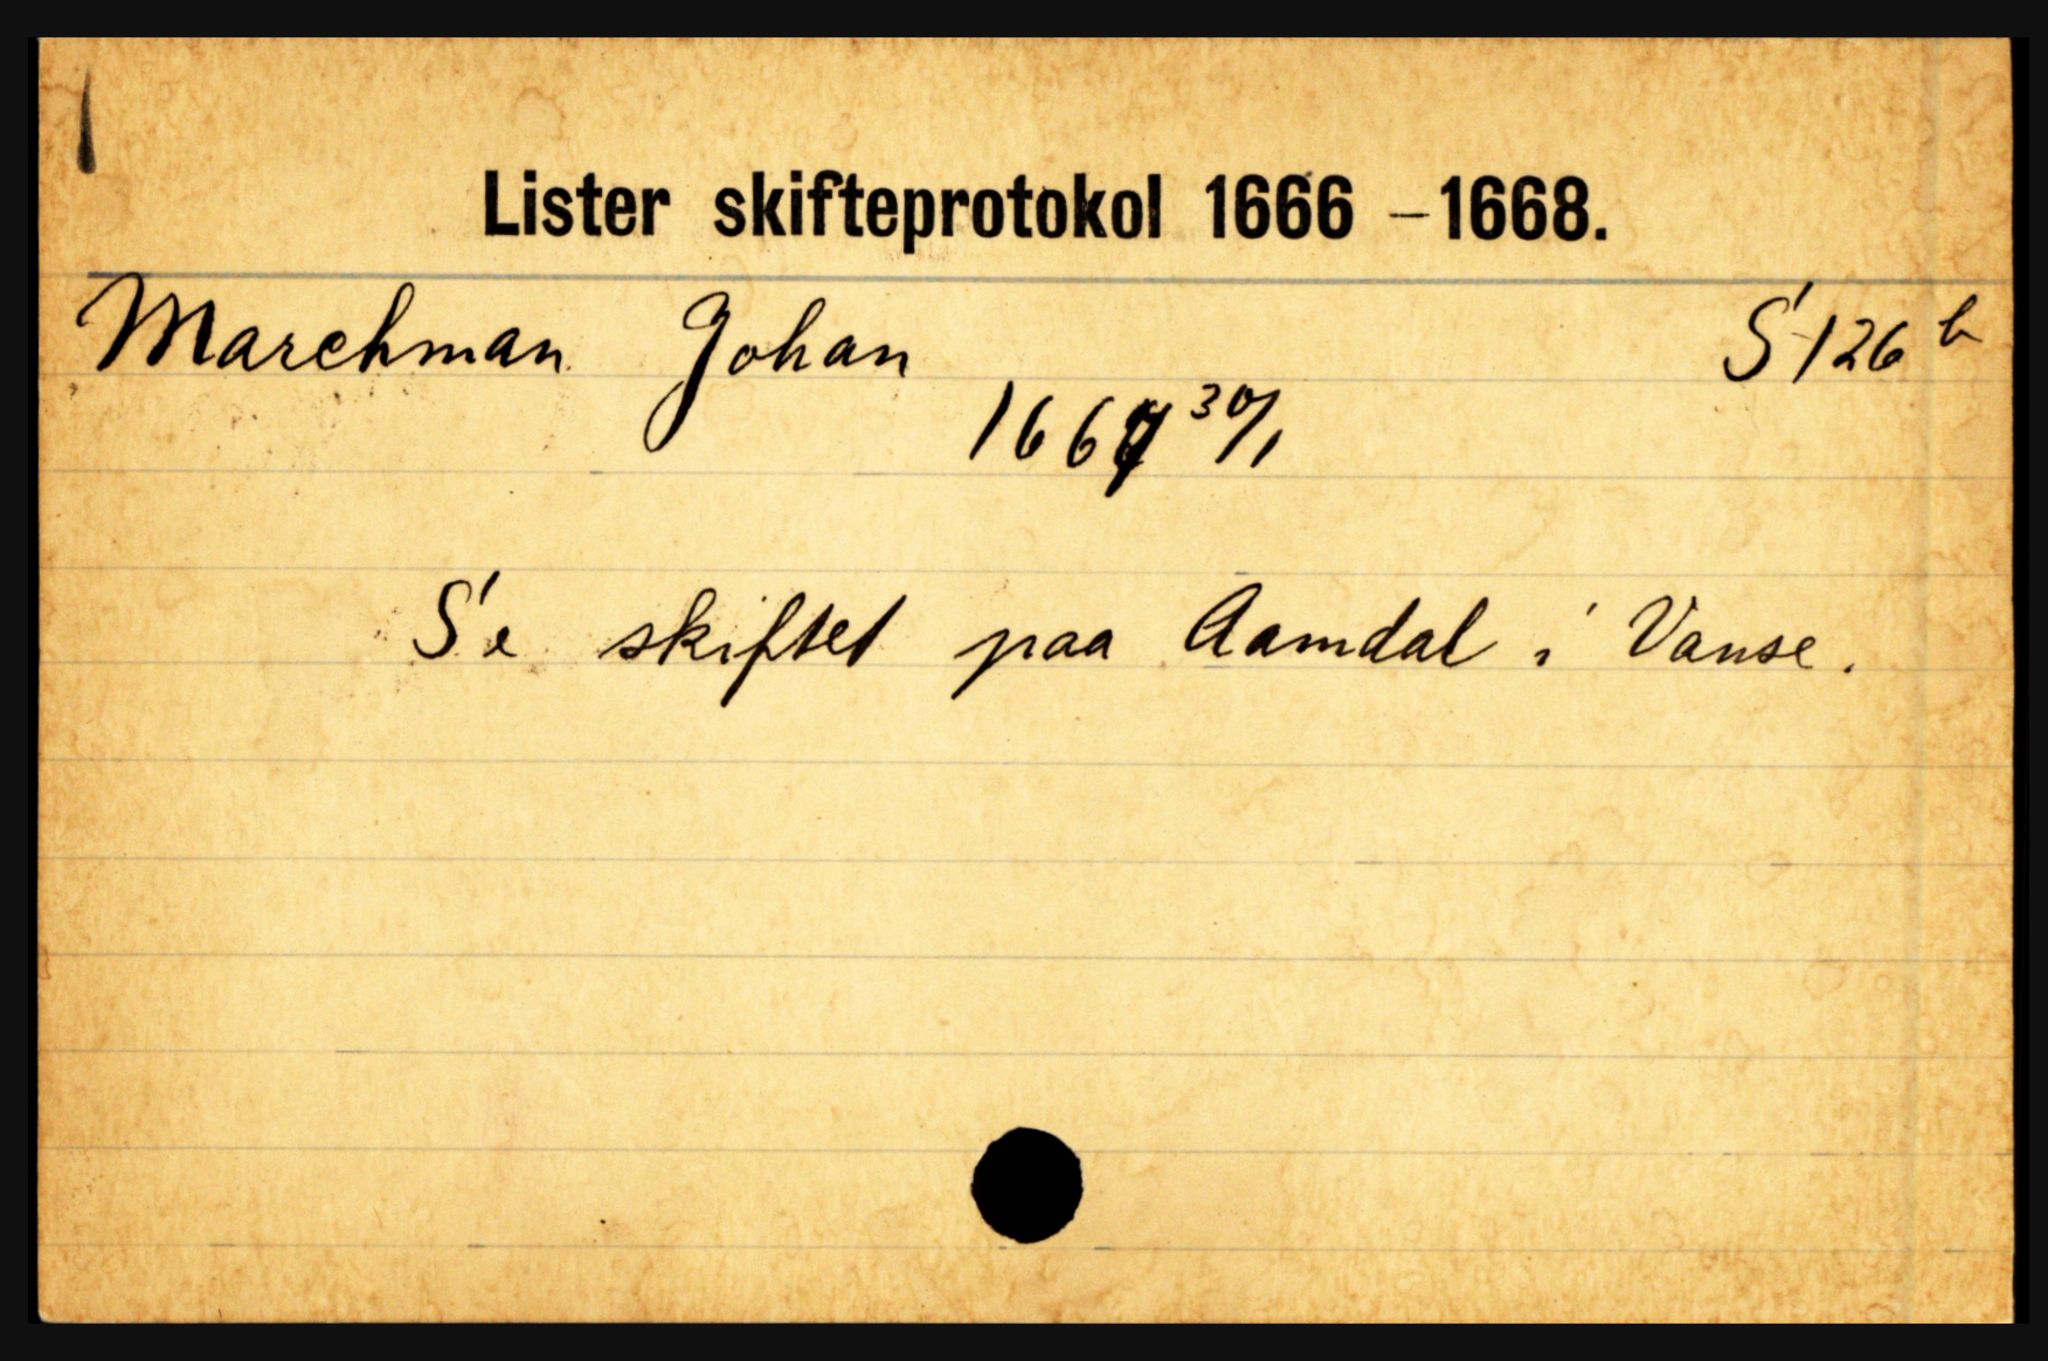 Lister skifteprotokol 1666 - 1668.
Marchman Johan S 126 b
1667 30/1
Se skiftet paa Aamdal i Vanse.